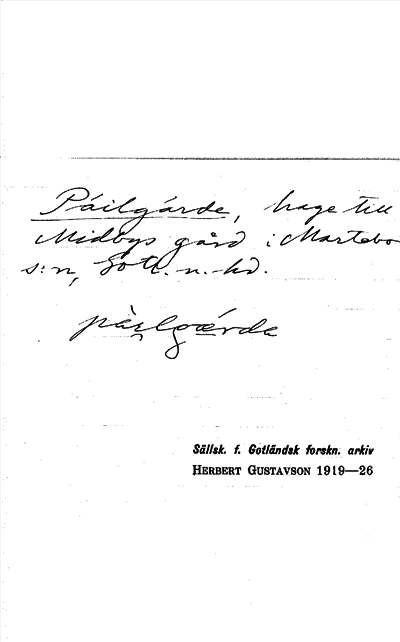 Páilgárde, hage till
Midbys gård i Martebo
s:n, Gotl. n. hd.
pàilgǽrda
Sällsk. f. Gotländsk forskn. arkiv
HERBERT GUSTAVSON 1919—26